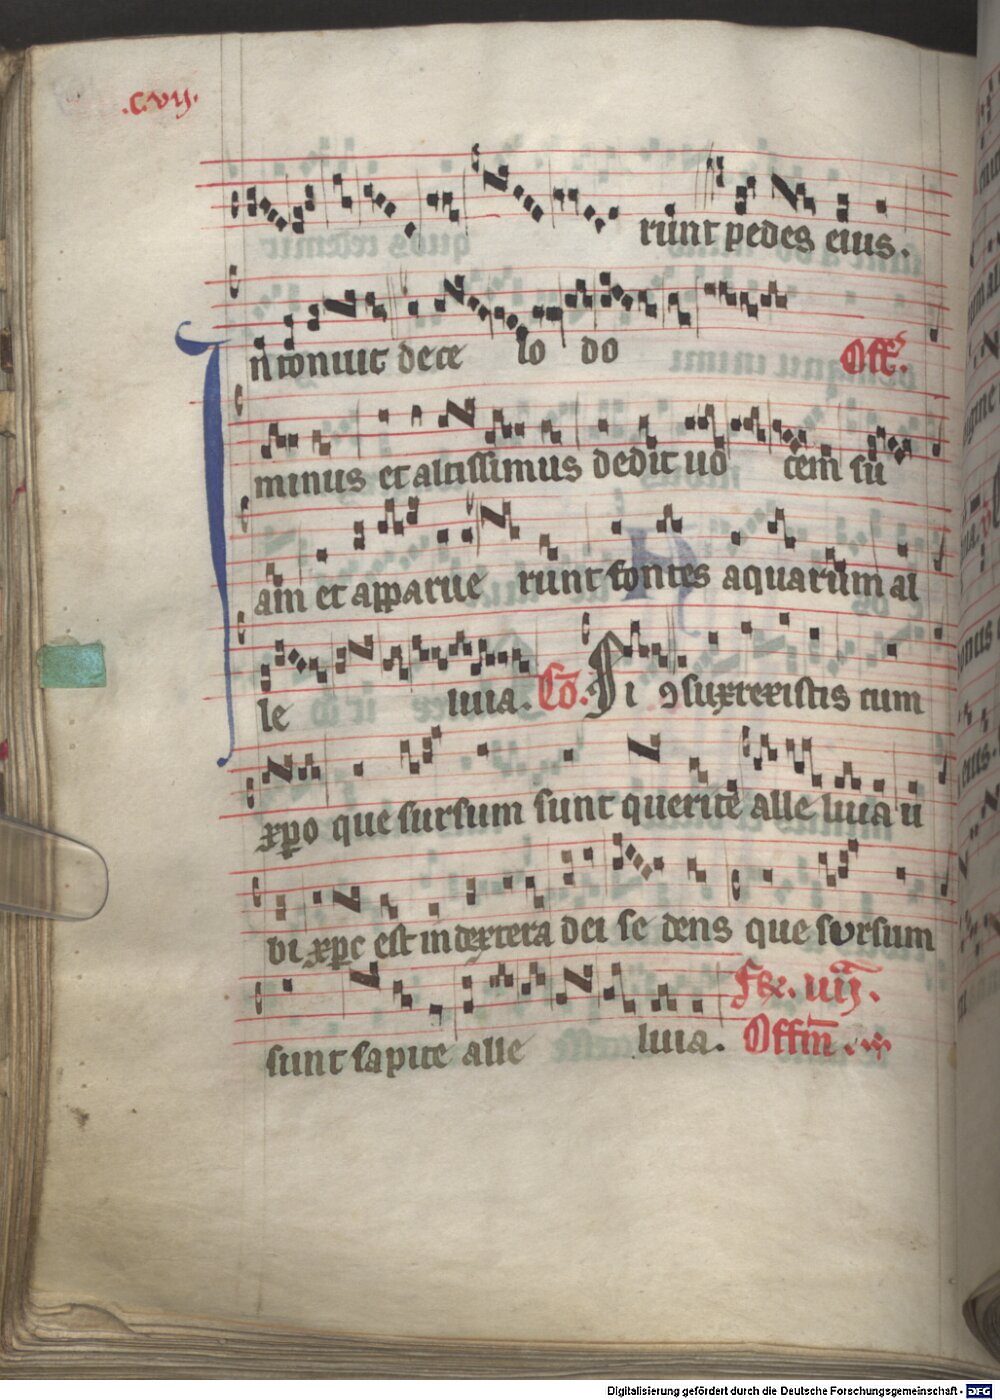 .C.vij.
runt pedes eius.
Intonuit de ce lo do Off͛.
minus et altissimus dedit uo cem su
am et apparue runt fontes aquarum al
le luia. Cō. Si ꝯsurrexistis cum
xp̄o que sursum sunt querite alle luia u
bi xp̄c est in dextera dei se dens que sursum
sunt sapite alle luia. iiij.
Offm̄.
Digitalisierung gefördert durch die Deutsche Forschungsgemeinschaft - DFG